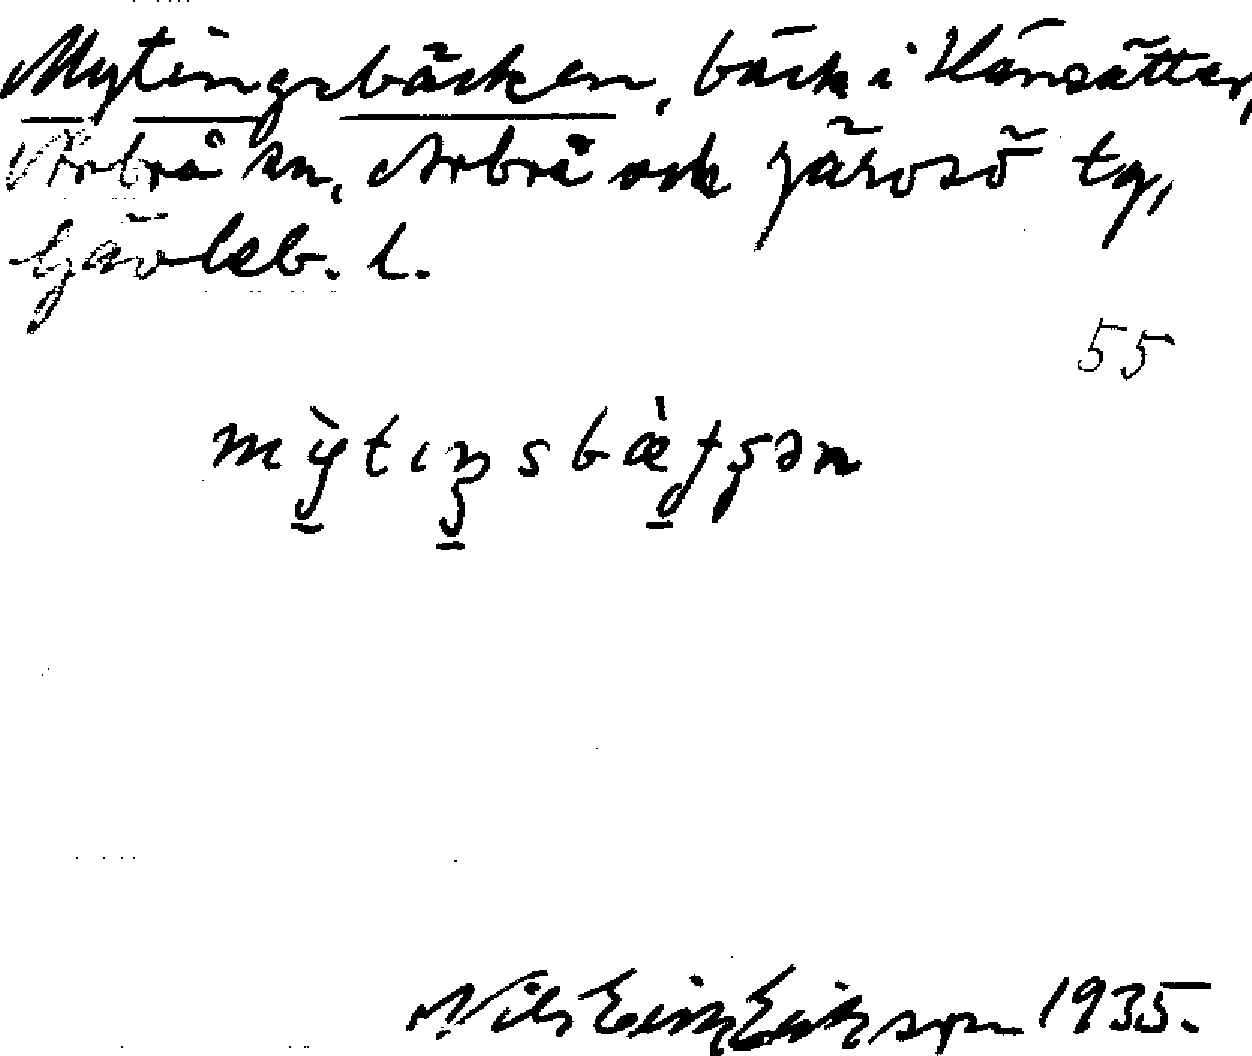 Mytingsbäcken, bäck i Hänsätter,
Arbrå sn, Arbrå och Järvsö tg,
Gävleb. l.
55
mỳtıŋsbæ̀tʂən
Nils Erik Eriksson 1935.